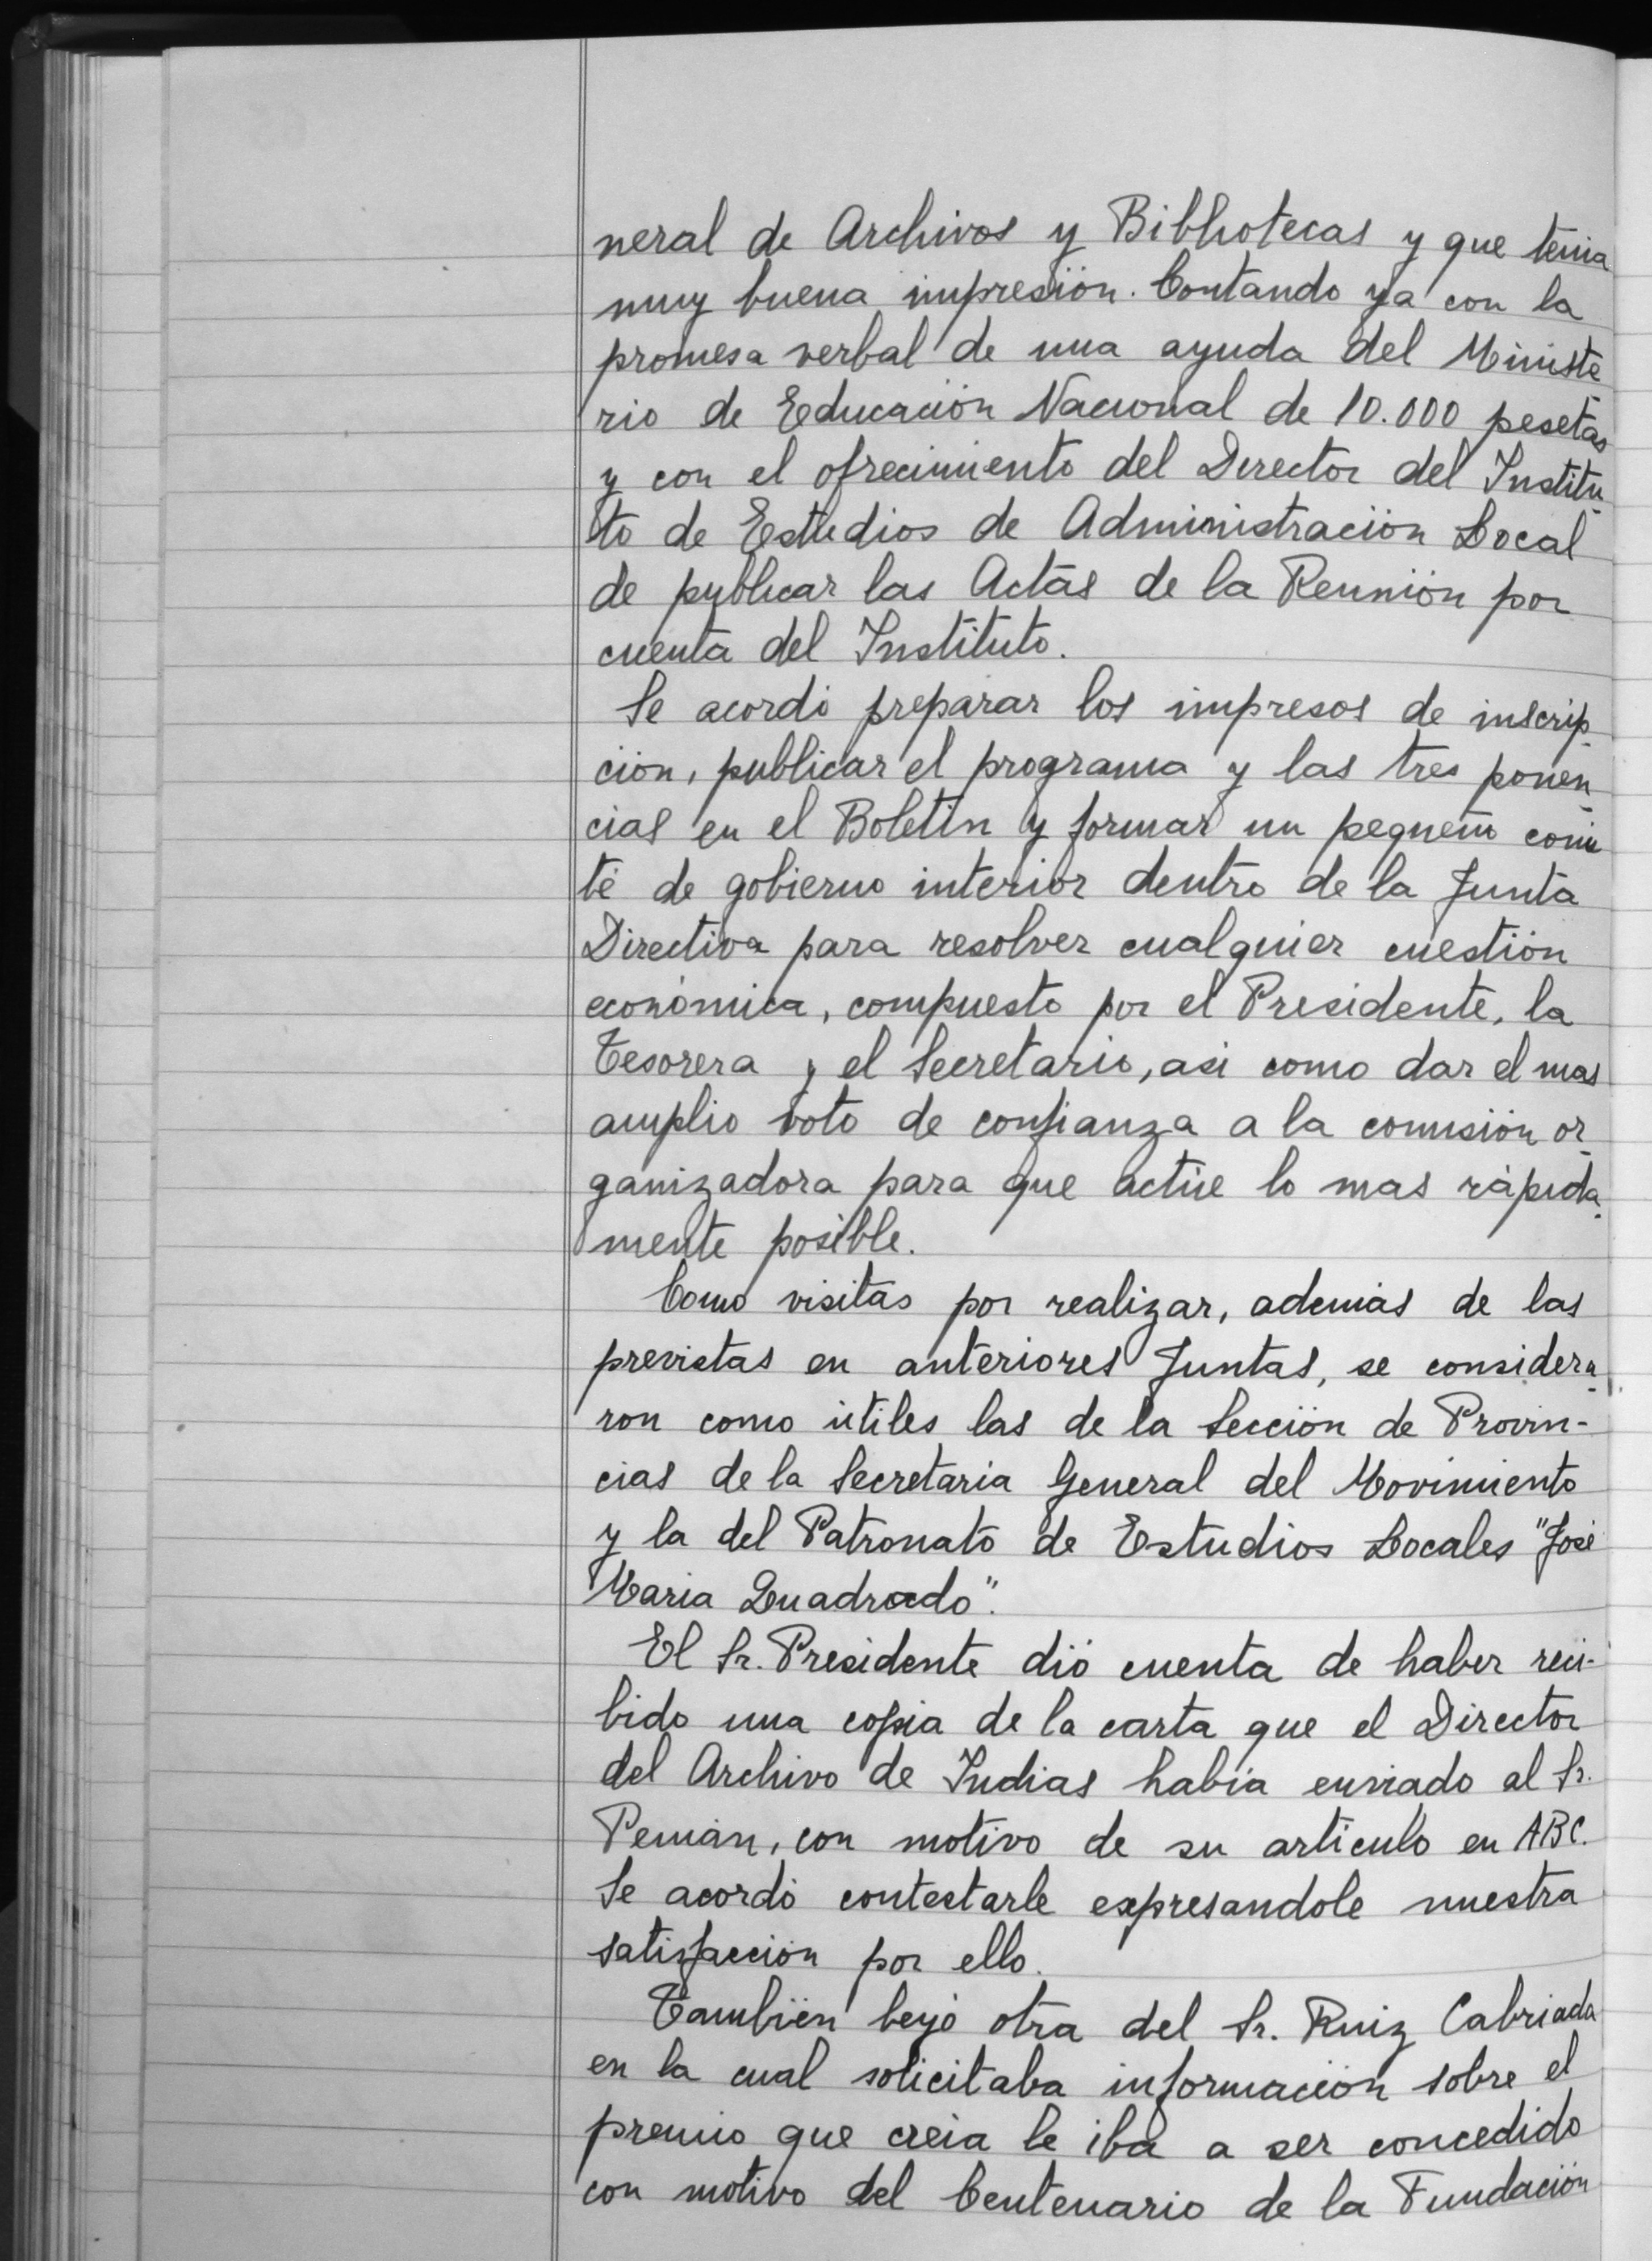 neral de Archivos y Bibliotecas y que tenia
muy buena impresión. Contando ya con la
promesa verbal de una ayuda del Ministe-
rio de Educación Nacional de 10.000 pesetas
y con el ofrecimiento del Director del Institu-
to de Estudios de Administración Local
de publicar las Actas de la Reunión por
cuenta del Instituto.
Se acordó preparar los impresos de inscrip-
ción, publicar el programa y las tres ponen-
cias en el Boletín y formar un pequeño comi-
té de gobierno interior dentro de la Junta
Directiva para resolver cualquier cuestión
económica, compuesto por el Presidente, la
Tesorera y el Secretario, asi como dar el mas
amplio voto de confianza a la comisión or-
ganizadora para que actúe lo mas rápida-
mente posible.
Como visitas por realizar, además de las
previstas en anteriores Juntas, se considera-
ron como útiles las de la Sección de Provin-
cias de la Secretaria General del Movimiento
y la del Patronato de Estudios Locales "José
Maria Quadrado".
El Sr. Presidente dió cuenta de haber reci-
bido una copia de la carta que el Director
del Archivo de Indias había enviado al Sr.
Pemán, con motivo de su artículo en ABC.
Se acordó contestarle expresandole nuestra
satisfacción por ello.
También leyó otra del Sr. Ruiz Cabriada
en la cual solicitaba información sobre el
premio que creia le iba a ser concedido
con motivo del Centenario de la Fundación